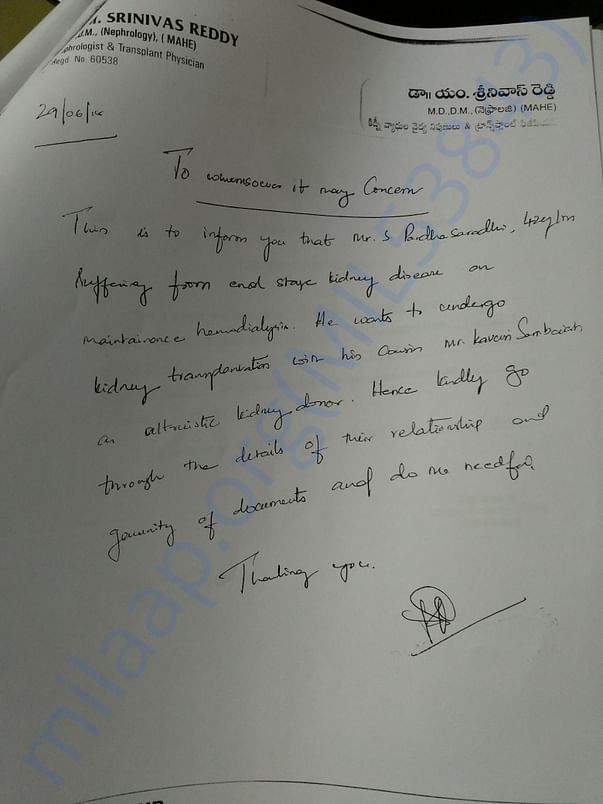 . SRINIVAS REDDY
.M., (Nephrology), ( MAHE)
phrologist & Transplant Physician
Regd No. 60538
డా|| యం. శ్రీనివాస్ రెడ్డి
M.D.,D.M., (నెఫ్రాలజి) (MAHE)
కిడ్నీ వ్యాధుల వైద్య నిపుణులు & ట్రాన్స్‌ప్లాంట్
29/06/16
To whomsoever it may Concern
This is to inform you that Mr. S Pardha Saradhi, 42y/m
Suffering from end stage kidney disease on
maintainance hemodialysis. He wants to undergo
kidney transplantation with his Cousin Mr. Kaveri Sambaiah
as altruistic kidney donor. Hence kindly go
through the details of their relationship and
genunity of documents and do the needful.
Thanking you.
milaap.org(MIL53813)